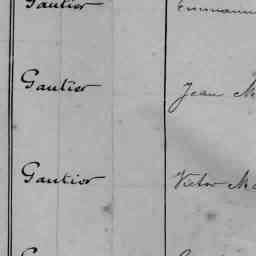 Gautier
Gautier Jean M
Gautier Victor Ma